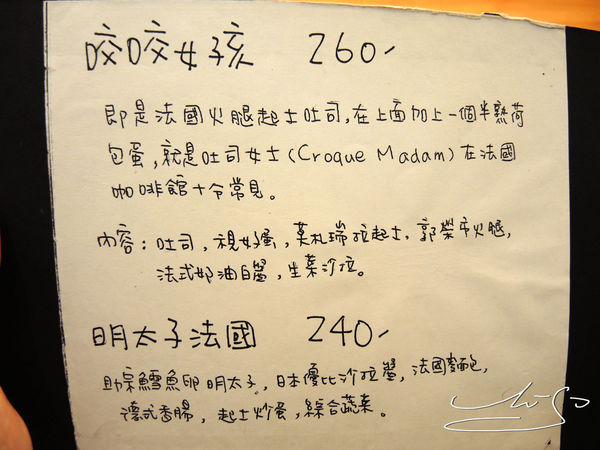 咬咬女孩 260-
即是法國火腿起士吐司,在上面加上一個半熟荷
包蛋,就是吐司女士(Croque Madam)在法國
咖啡館十分常見。
內容:吐司,視好蛋,莫札瑞拉起士,郭榮市火腿,
法式奶油白醬,生菜沙拉。
明太子法國 240-
鱈魚卵明太子,日本優比沙拉醬,法國麵包,
德式香腸,起士炒蛋,綜合蔬菜。